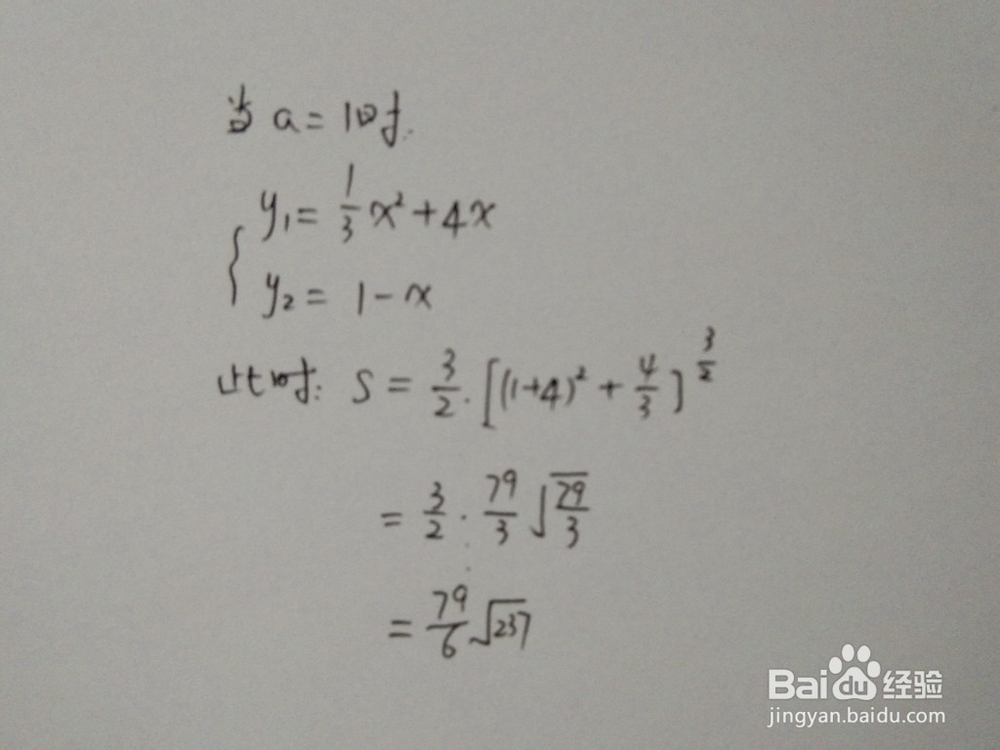 当 a = 1时.
y₁ = 1/3 x² + 4x
y₂ = 1 - x
此时: S = 3/2 · [(1+4)² + 4/3]^(3/2)
= 3/2 · 79/3 √(79/3)
= 79/6 √237
Baidu经验
jingyan.baidu.com